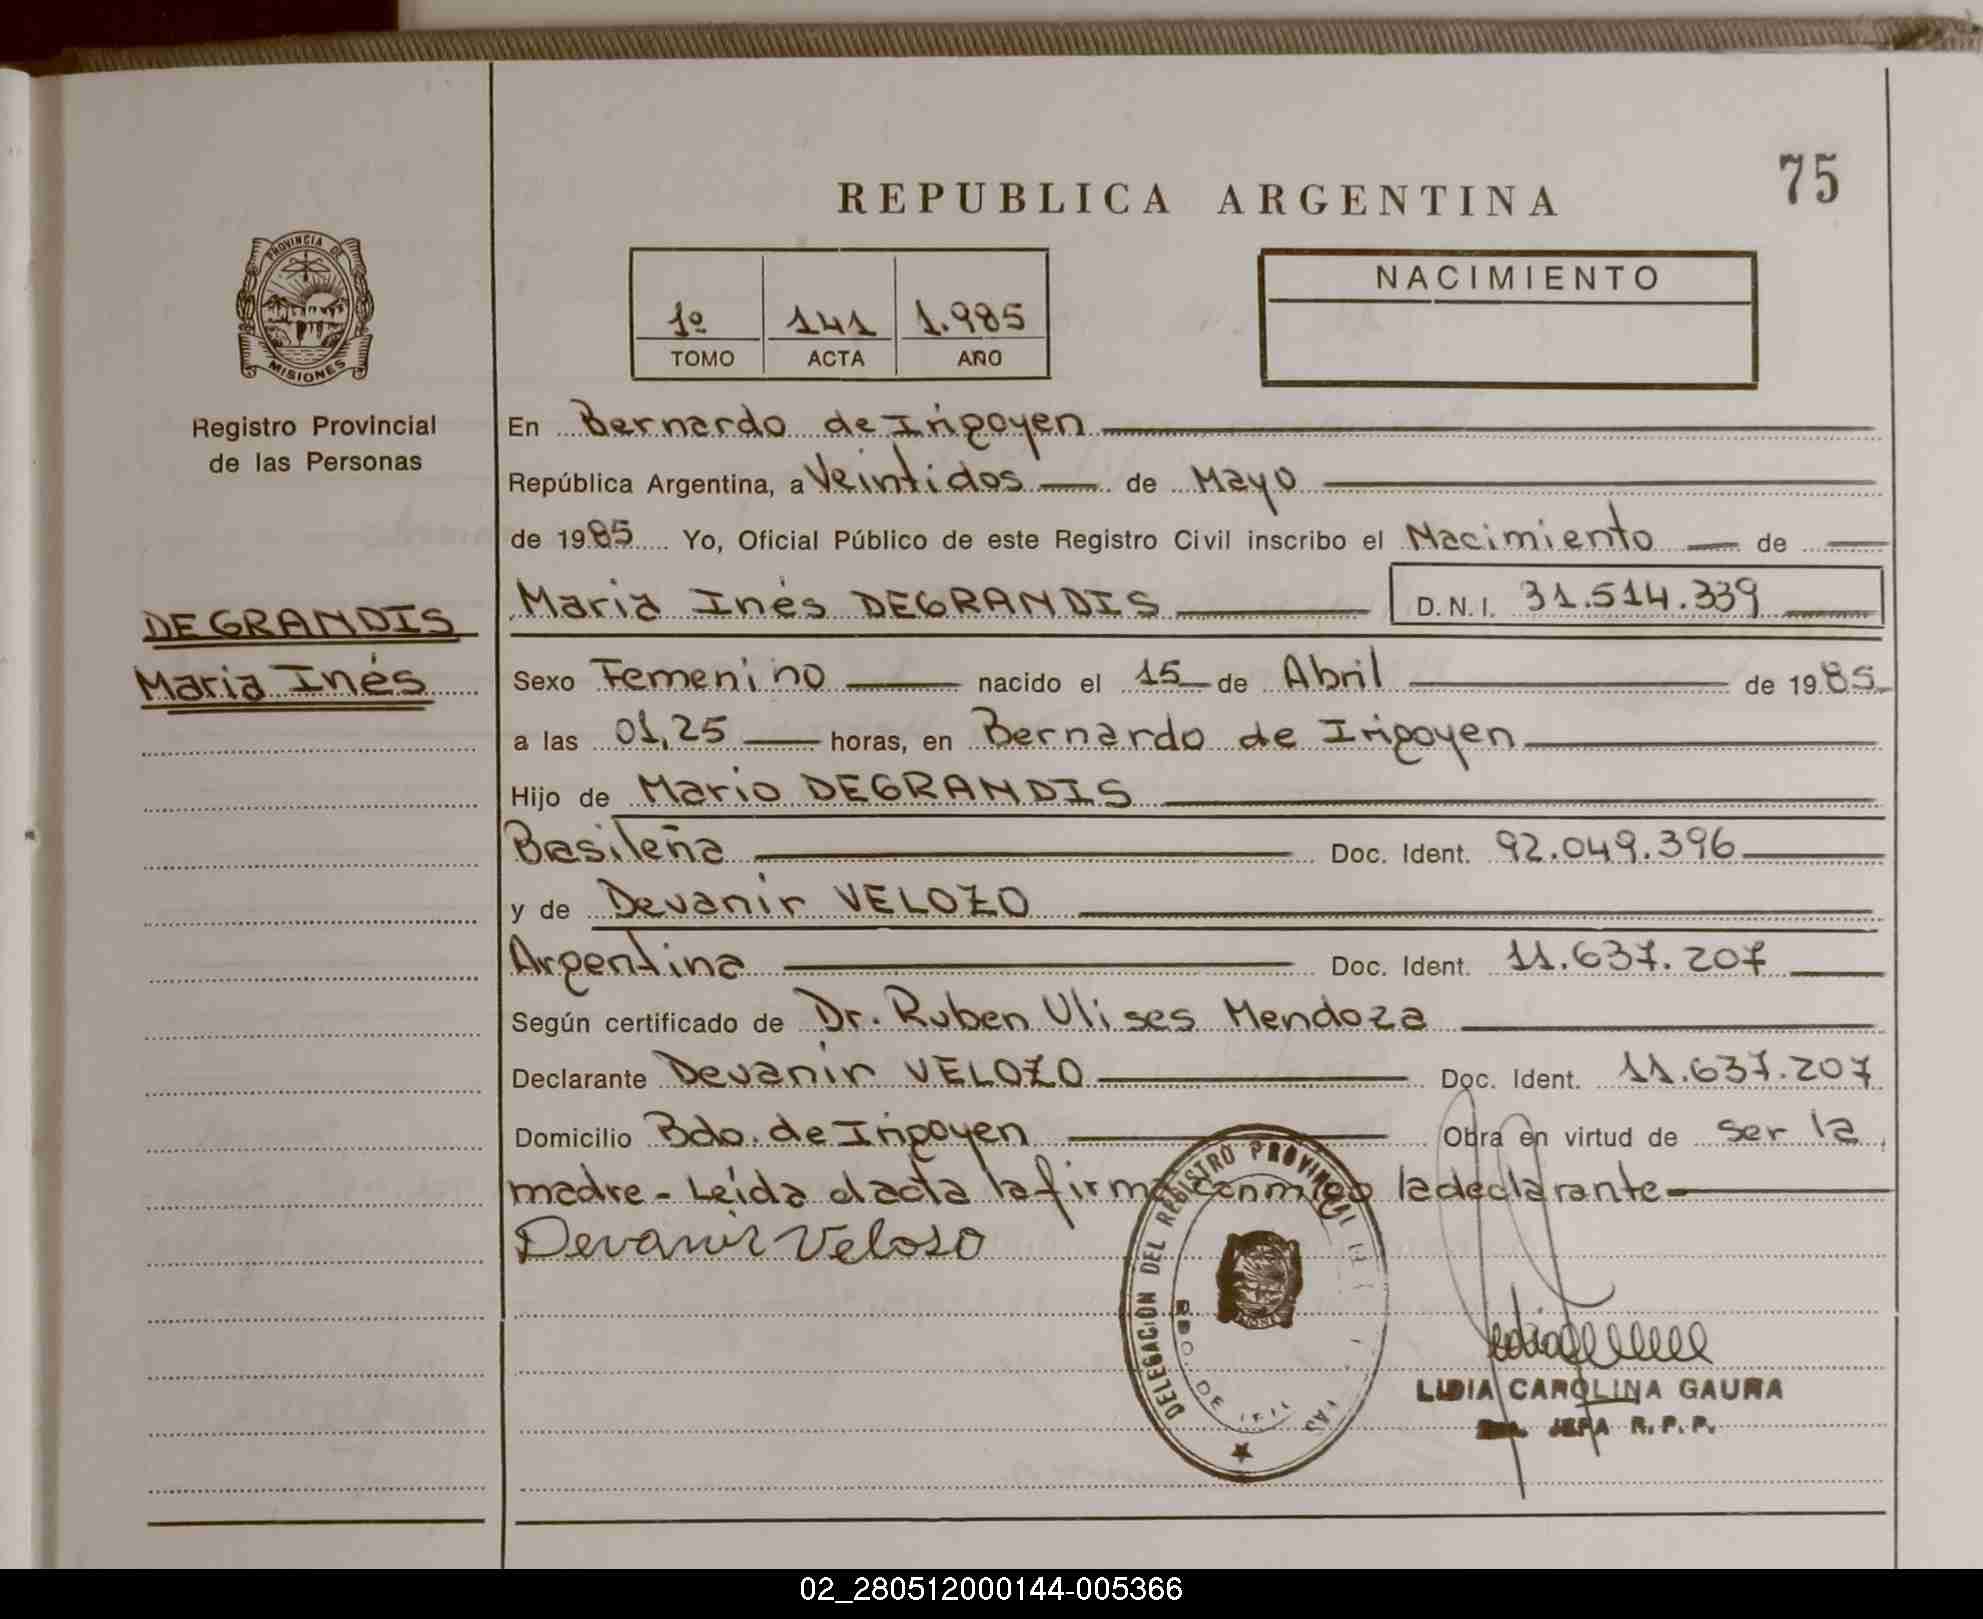 75
REPUBLICA ARGENTINA
PROVINCIA DE
MISIONES
Registro Provincial
de las Personas
1º 141 1.985
TOMO ACTA AÑO
NACIMIENTO
En Bernardo de Irigoyen
República Argentina, a Veintidos de Mayo
de 1985 Yo, Oficial Público de este Registro Civil inscribo el Nacimiento de
DEGRANDIS
Maria Inés
Maria Inés DEGRANDIS D.N.I. 31.514.339
Sexo Femenino nacido el 15 de Abril de 1985
a las 01,25 horas, en Bernardo de Irigoyen
Hijo de Mario DEGRANDIS
Basileña Doc. Ident. 92.049.396
y de Devanir VELOZO
Argentina Doc. Ident. 11.637.207
Según certificado de Dr. Ruben Ulises Mendoza
Declarante Devanir VELOZO Doc. Ident. 11.637.207
Domicilio Bdo. de Irigoyen Obra en virtud de ser la
madre - Leída el acta la firma conmigo la declarante
Devanir Veloso
DELEGACIÓN DEL REGISTRO PROVINCIAL
BDO DE
LIDIA CAROLINA GAUNA
JEFA R.P.P.
02_280512000144-005366